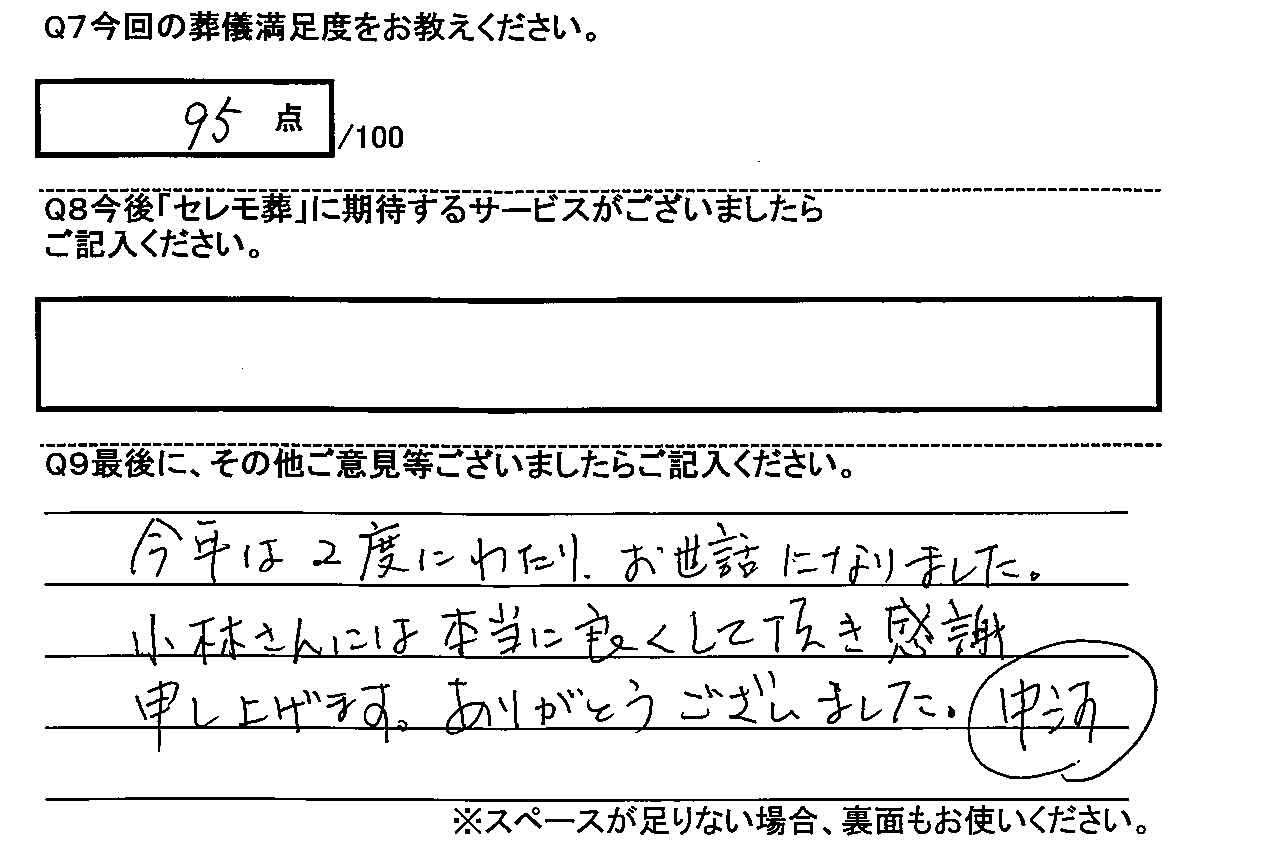 Q7今回の葬儀満足度をお教えください。
95 点 /100
Q8今後「セレモ葬」に期待するサービスがございましたら
ご記入ください。
Q9最後に、その他ご意見等ございましたらご記入ください。
今年は2度にわたり、お世話になりました。
小林さんには本当に良くして頂き感謝
申し上げます。ありがとうございました。
※スペースが足りない場合、裏面もお使いください。